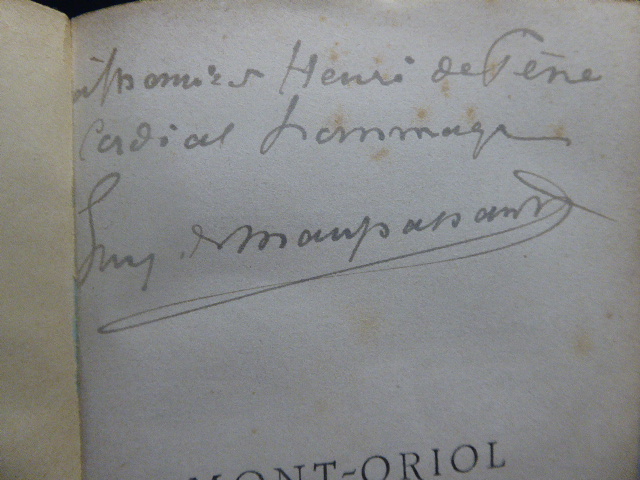 à Monsieur Henri de Pène
Cordial hommage
Guy de Maupassant
MONT-ORIOL